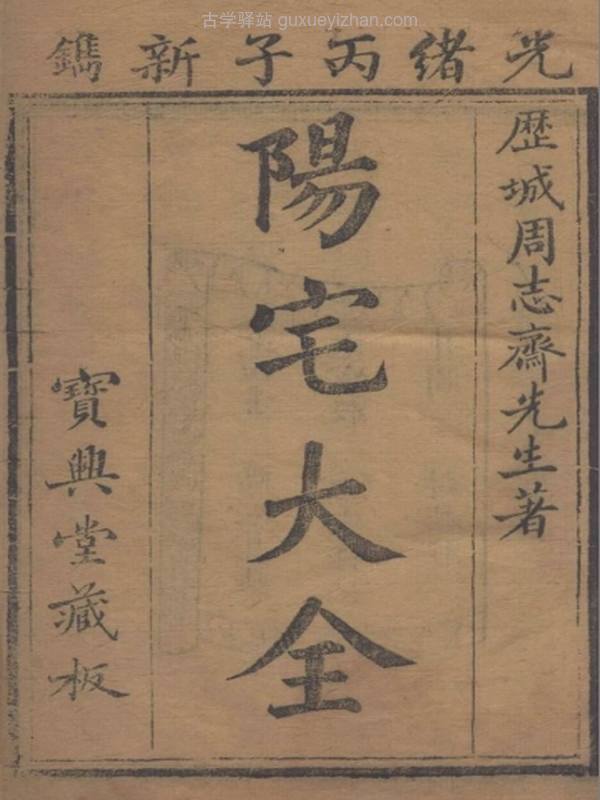 古学驿站 guxueyizhan.com
光緒丙子新鐫
歷城周志齋先生著
陽宅大全
寶興堂藏板